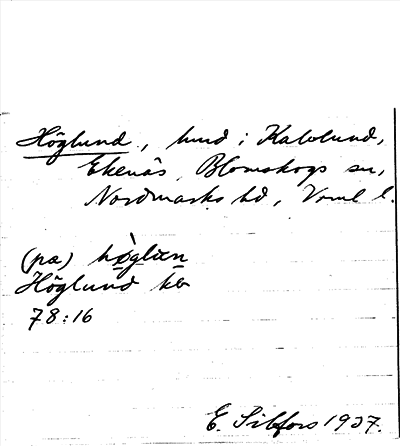 Höglund, hmd i Kalvlund,
Ekenäs, Blomskogs sn,
Nordmarks hd, Vrml l.
(pœ) hø̀glun
Höglund ko
78:16
E. Sibfors 1937.